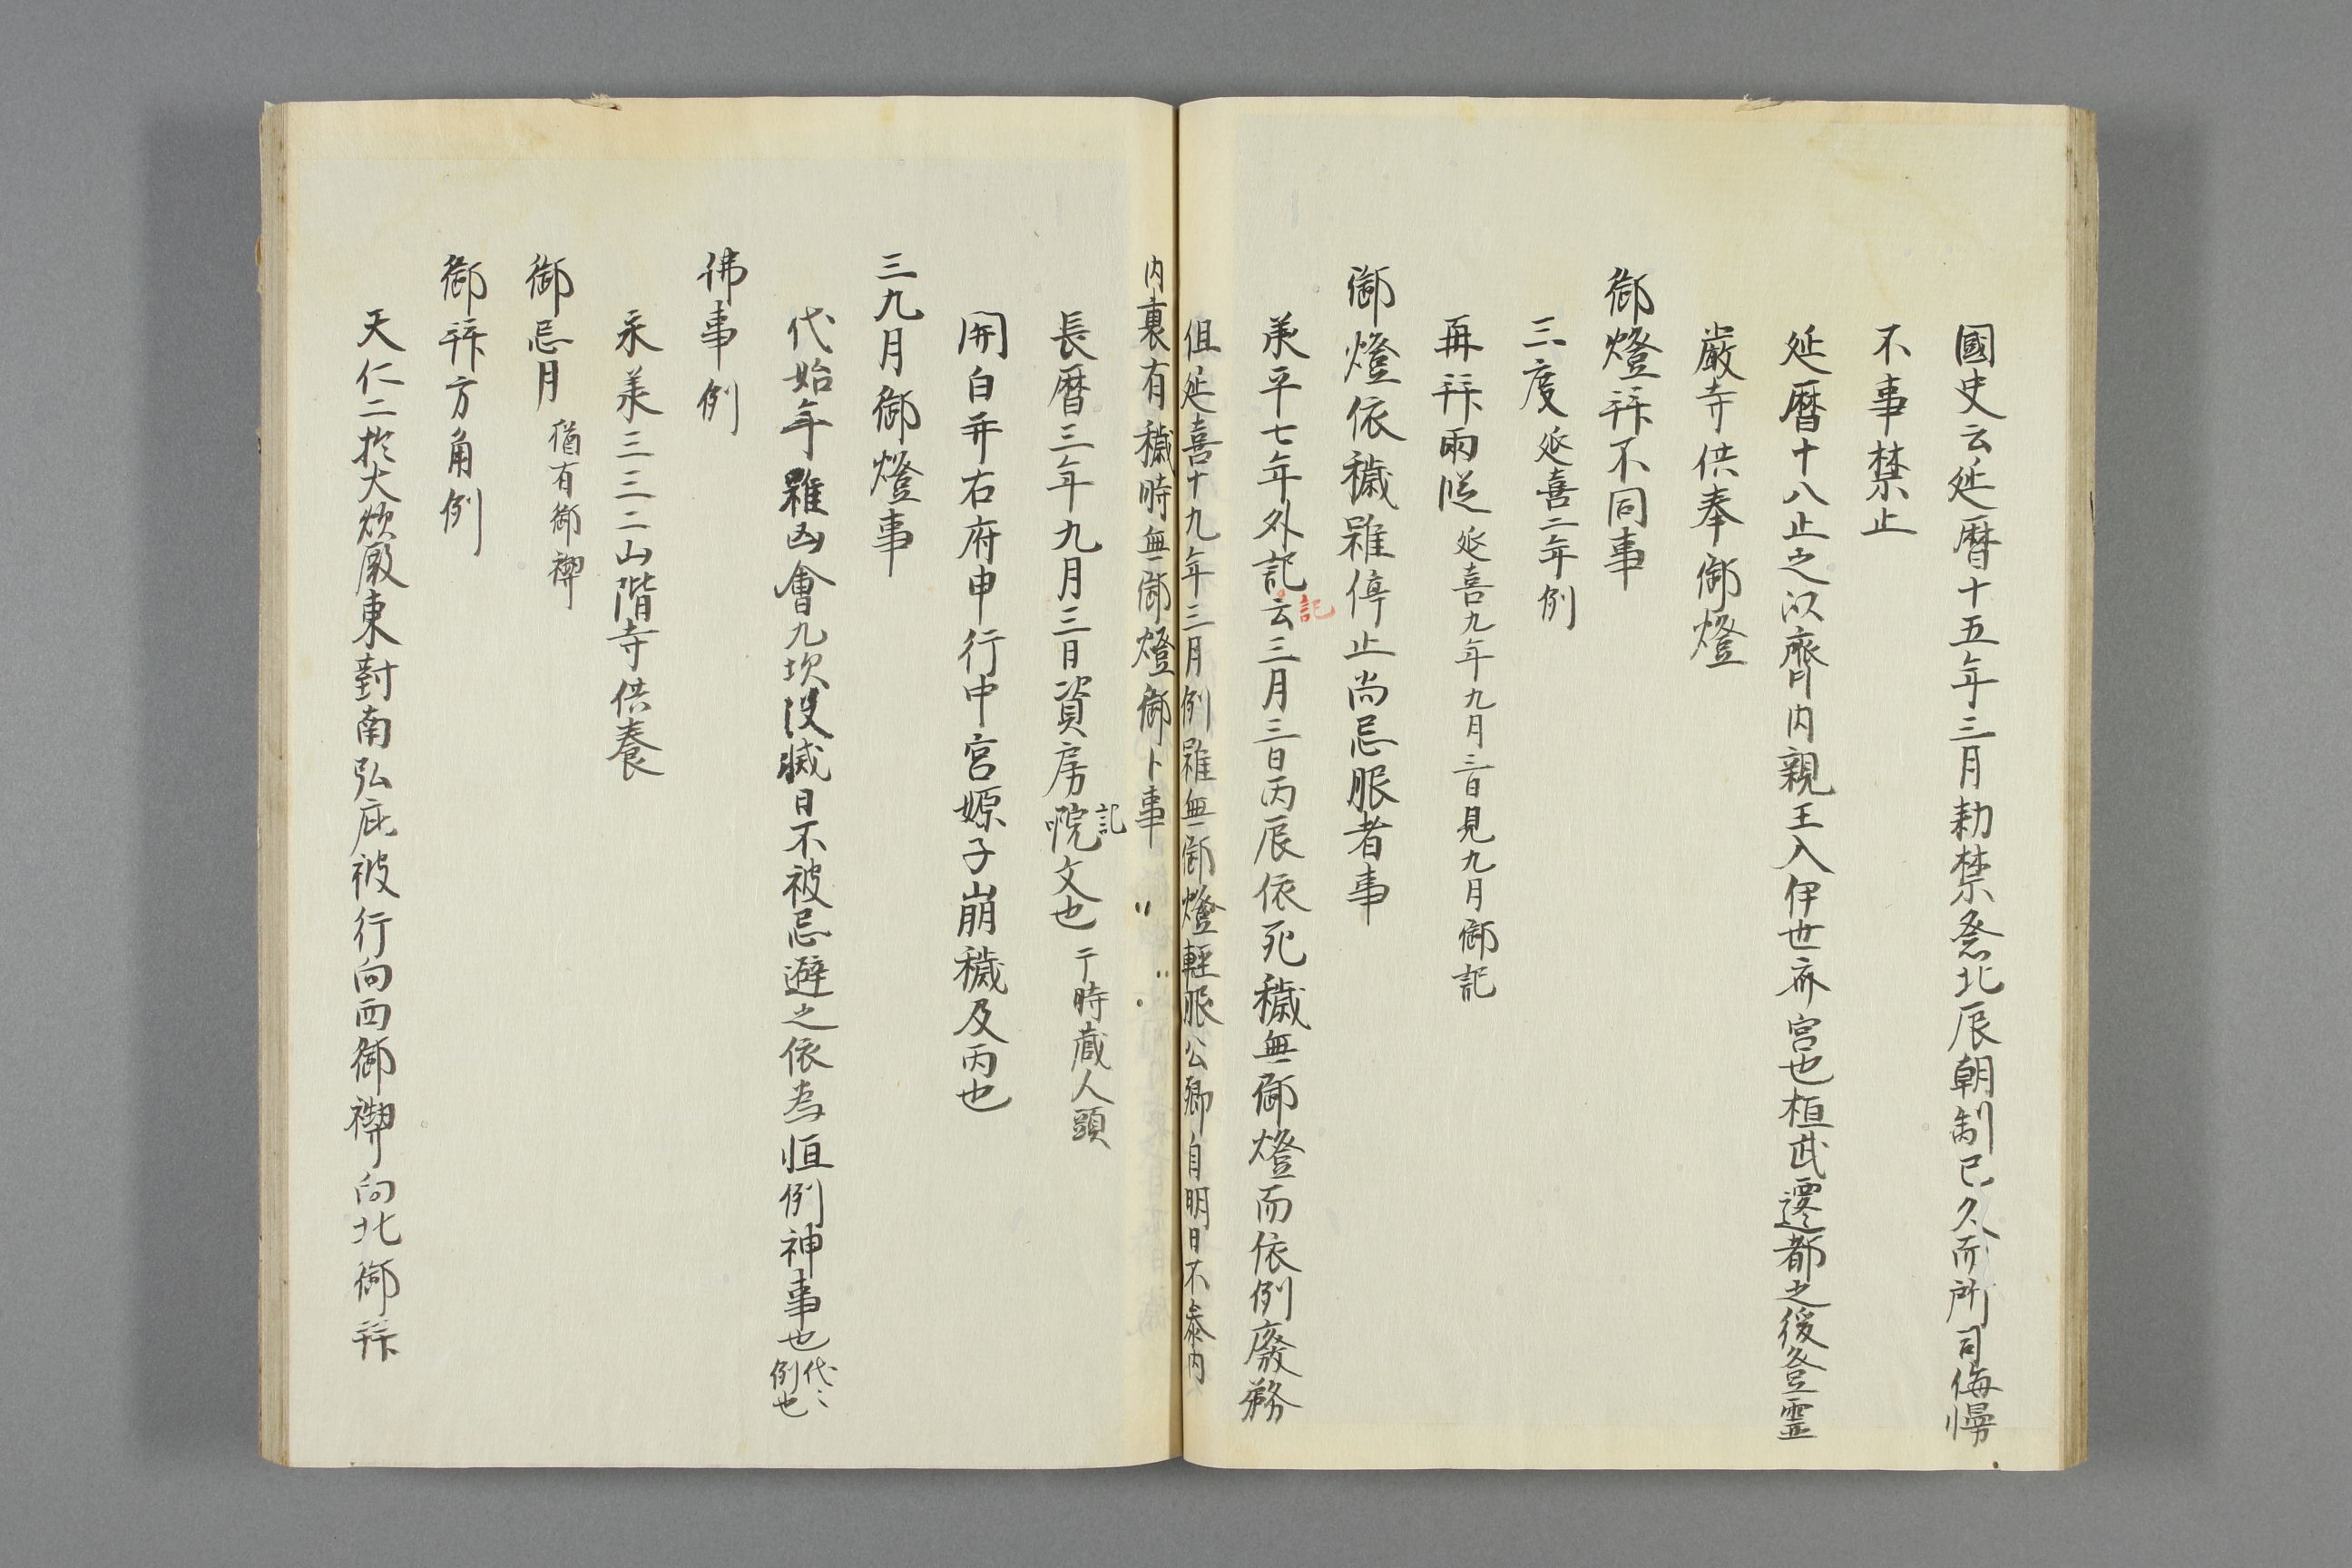 國史云延暦十五年三月勅禁祭北辰朝制已久而所司侮慢
不事禁止
延暦十八止之以齋内親王入伊世斎宮也桓武遷都之後登霊
巌寺供奉御燈
御燈拜不同事
三度延喜二年例
再拜兩段延喜九年九月三日見九月御記
御燈依穢雖停止尚忌服者事
承平七年外記云三月三日丙辰依死穢無御燈而依例廢務
記
但延喜十九年三月例雖無御燈輕服公卿自明日不参内
内裏有穢時無御燈御卜事
長暦三年九月三日資房院文也于時蔵人頭
記
開白并右府申行中宮嫄子崩穢及丙也
三九月御燈事
代始年雖凶會九坎没滅日不被忌避之依為恒例神事也代〻例也
佛事例
永義三三二山階寺供養
御忌月猶有御禊
御拜方角例
天仁二於大炊殿東對南弘庇被行向西御禊向北御拜